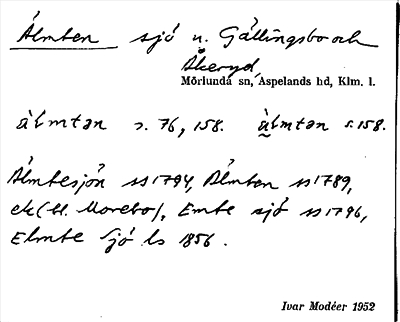 Älmten sjö n. Gällingsbo och
Åkeryd,
Mörlunda sn, Aspelands hd, Klm. l.
älmtən s. 76, 158. älmtən s. 158.
Älmtesjön ss 1794, Älmten ss 1789,
ek (H. Morebo), Emte sjö ss 1796,
Elmte Sjö ls 1856.
Ivar Modéer 1952